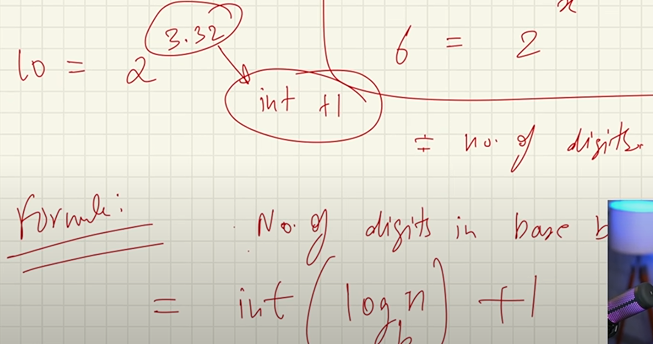 10 = 2^3.32
int +1
6 = 2^x
= no. of digits.
Formula:
No. of digits in base b
= int (log_b n) +1